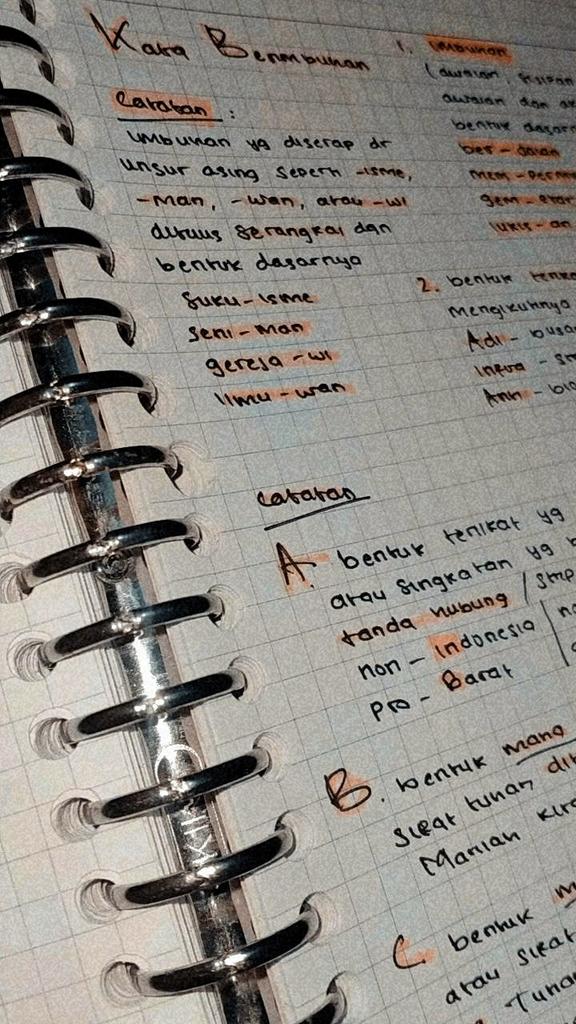 Kata Berimbuhan
Catatan :
imbuhan yg diserap dr
unsur asing seperti -isme,
-man, -wan, atau -wi
ditulis serangkai dgn
bentuk dasarnya
suku-isme
seni-man
gereja-wi
ilmu-wan
1. imbuhan
(awalan, sisipan
awalan dan
bentuk dasarn
ber-jalan
mem-perm
gem-etar
lukis-an
2. bentuk terika
mengikutinya
Adi - busa
infra - st
Anti - bio
catatan
A. bentuk terikat yg
atau singkatan yg b
tanda hubung /
non - Indonesia
pro - Barat
B. bentuk maha
sifat tuhan dit
C. bentuk m
atau sifat
Tuhan